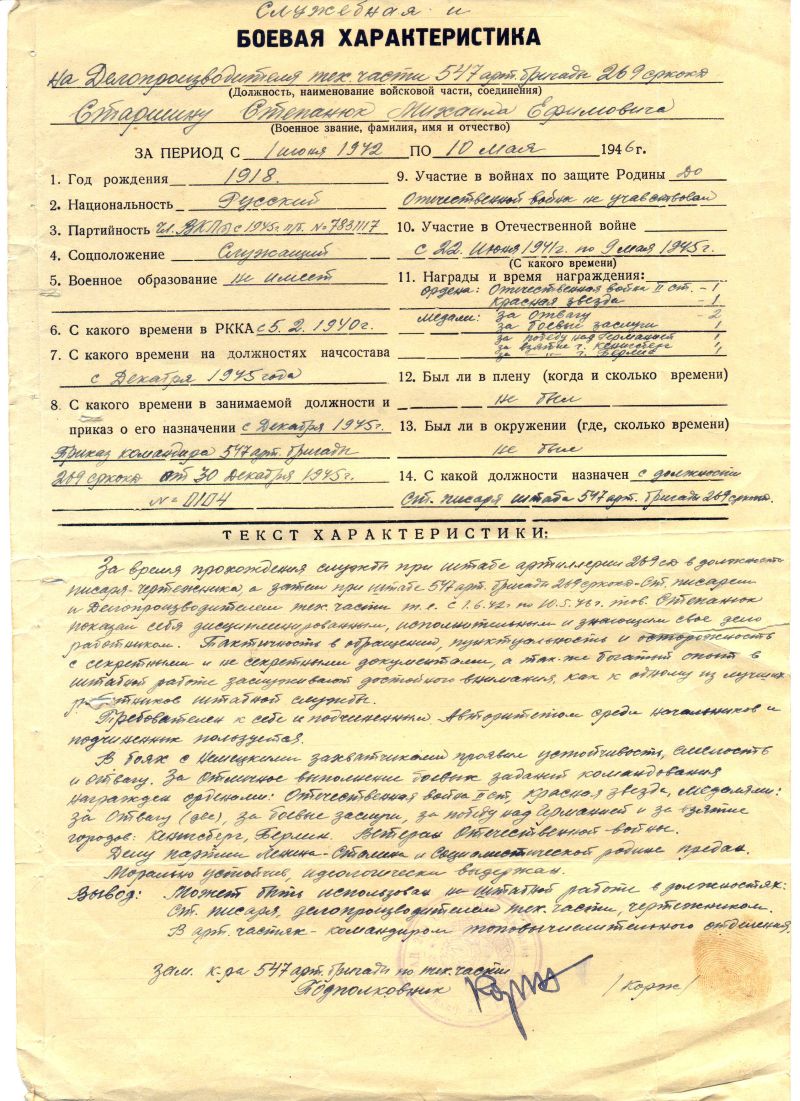 Служебная и
БОЕВАЯ ХАРАКТЕРИСТИКА
на Делопроизводителя тех. части 547 арт. бригады 269 сркокд
(Должность, наименование войсковой части, соединения)
Старшину Степанюк Михаила Ефимовича
(Военное звание, фамилия, имя и отчество)
ЗА ПЕРИОД С 1 июня 1942 ПО 10 мая 1946 г.
1. Год рождения 1918.
2. Национальность Русский
3. Партийность чл. ВКП(б) с 1945г. п/б. № 7831117
4. Соцположение Служащий
5. Военное образование не имеет
6. С какого времени в РККА с 5.2.1940г.
7. С какого времени на должностях начсостава
с Декабря 1945 года
8. С какого времени в занимаемой должности и
приказ о его назначении с Декабря 1945г.
Приказ командира 547 арт. бригады
269 сркокд от 30 Декабря 1945г.
№ 0104
9. Участие в войнах по защите Родины До
Отечественной войны не учавствовал
10. Участие в Отечественной войне
с 22. Июня 1941г. по 9 мая 1945г.
(С какого времени)
11. Награды и время награждения:
ордена: Отечественная война II ст. - 1
Красная звезда - 1
медали: за отвагу - 2
за боевые заслуги 1
за победу над Германией 1
за взятие г. Кенигсберг 1
за " г. Берлин 1
12. Был ли в плену (когда и сколько времени)
не был
13. Был ли в окружении (где, сколько времени)
не был
14. С какой должности назначен с должности
Ст. писаря штаба 547 арт. бригады 269 сркокд.
ТЕКСТ ХАРАКТЕРИСТИКИ:
За время прохождения службы при штабе артиллерии 269 сд в должности
писаря-чертежника, а затем при штабе 547 арт. бригады 269 сркокд - Ст. писарем
и Делопроизводителем тех. части т.е. с 1.6.42г. по 10.5.46г. тов. Степанюк
показал себя дисциплинированным, исполнительным и знающим свое дело
работником. Тактичность в обращении, пунктуальность и осторожность
с секретными и не секретными документами, а так-же богатый опыт в
штабной работе заслуживают достойного внимания, как к одному из лучших
работников штабной службы.
Требователен к себе и подчиненным. Авторитетом среди начальников и
подчиненных пользуется.
В боях с Немецкими захватчиками проявил устойчивость, смелость
и отвагу. За Отличное выполнение боевых заданий командования
награжден орденами: Отечественная война II ст, Красная звезда, Медалями:
за Отвагу (две), за боевые заслуги, за победу над Германией и за взятие
городов: Кенигсберг, Берлин. Ветеран Отечественной войны.
Делу партии Ленина-Сталина и Социалистической родине предан.
Морально устойчив, идеологически выдержан.
Вывод: Может быть использован на штабной работе в должностях:
Ст. писаря, делопроизводителем тех. части, чертежником.
В арт. частях - командиром топовычислительного отделения.
Зам. к-ра 547 арт. бригады по тех. части
Подполковник Корж /Корж/